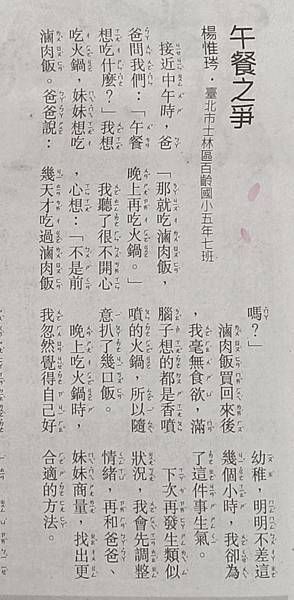 午餐之爭
楊惟琇．臺北市士林區百齡國小五年七班
接近中午時，爸
爸問我們：「午餐
想吃什麼？」我想
吃火鍋，妹妹想吃
滷肉飯。爸爸說：
「那就吃滷肉飯，
晚上再吃火鍋。」
我聽了很不開心
，心想：「不是前
幾天才吃過滷肉飯
嗎？」
滷肉飯買回來後
，我毫無食欲，滿
腦子想的都是香噴
噴的火鍋，所以隨
意扒了幾口飯。
晚上吃火鍋時，
我忽然覺得自己好
幼稚，明明不差這
幾個小時，我卻為
了這件事生氣。
下次再發生類似
狀況，我會先調整
情緒，再和爸爸、
妹妹商量，找出更
合適的方法。